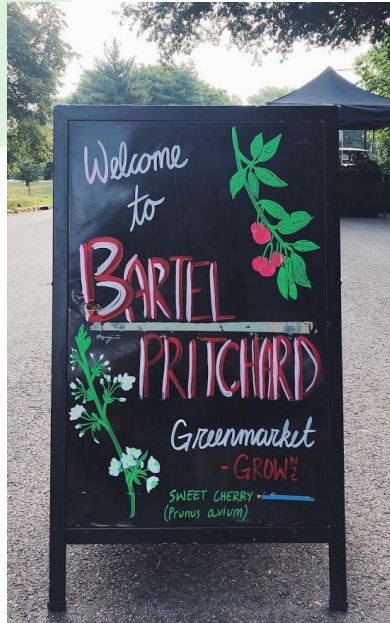 Welcome
to
BARTEL
PRITCHARD
Greenmarket
-GROWNYC
SWEET CHERRY
(Prunus avium)